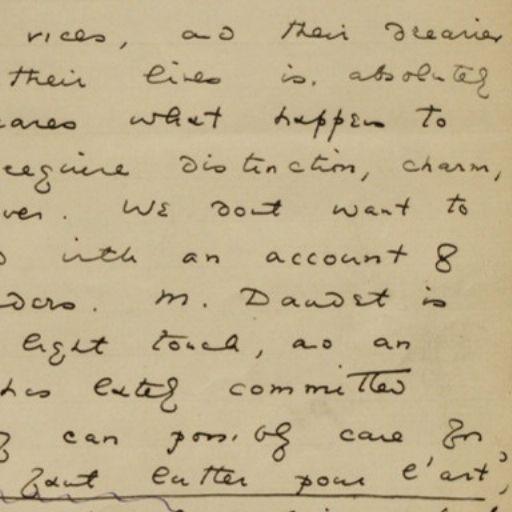 vices, and their drearier
their lives is absolutely
cares what happens to
require distinction, charm,
ver. We dont want to
with an account of
ders. M. Daudet is
light touch, and an
has lately committed
can possibly care for
faut lutter pour l'art',